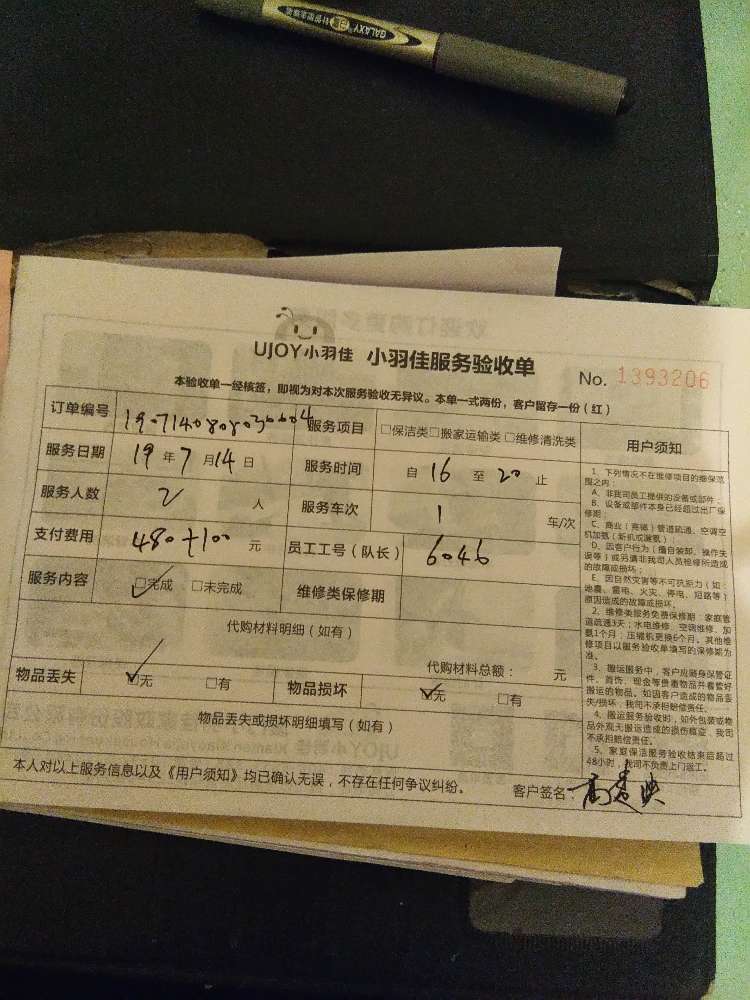 GALAXY
UJOY小羽佳 小羽佳服务验收单
No. 1393206
本验收单一经核签，即视为对本次服务验收无异议。本单一式两份，客户留存一份（红）
订单编号 服务项目 □保洁类□搬家运输类 □维修清洗类
服务日期 19 年 7 月 14 日 服务时间 自 16 至 20 止
服务人数 2 人 服务车次 1 车/次
支付费用 480+100 元 员工工号（队长） 6046
服务内容 □完成 □未完成 维修类保修期
代购材料明细（如有）
代购材料总额： 元
物品丢失 □无 □有 物品损坏 □无 □有
物品丢失或损坏明细填写（如有）
本人对以上服务信息以及《用户须知》均已确认无误，不存在任何争议纠纷。
客户签名：
用户须知
1、下列情况不在维修项目的担保范
围之内：
A、非我司员工提供的设备或部件；
B、设备或部件本身已经超过出厂保
修期；
C、商业（商铺）管道疏通、空调空
机加氨（新机或漏氨）
D、因客户行为（擅自装卸、操作失
误等）或另请非我司人员检修所造成
的故障或损坏；
E、因自然灾害等不可抗影力（如：
地震、雷电、火灾、停电、短路等）
原因造成的故障或损坏。
2、维修类服务免费保修期：家庭管
道疏通3天；水电维修、空调维修、加
氨1个月；压缩机更换6个月。其他维
修项目以服务验收单填写的保修期为
准。
3、搬运服务中，客户应随身保管证
件、首饰、现金等贵重物品并看管好
搬运的物品。如因客户造成的物品丢
失/损坏，我司不承担赔偿责任。
4、搬运服务验收时，如外包装或物
品外观无搬运造成的损伤痕迹，我司
不承担赔偿责任。
5、家庭保洁服务验收结束后超过
48小时，我司不负责上门返工。